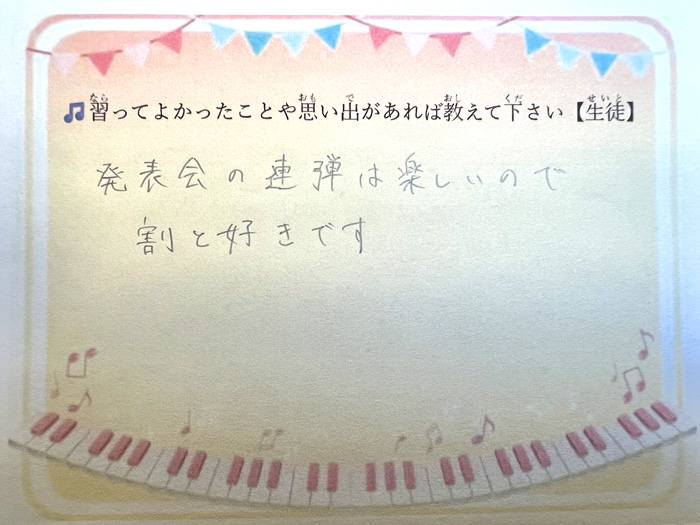 🎵習ってよかったことや思い出があれば教えて下さい【生徒】
発表会の連弾は楽しいので
割と好きです